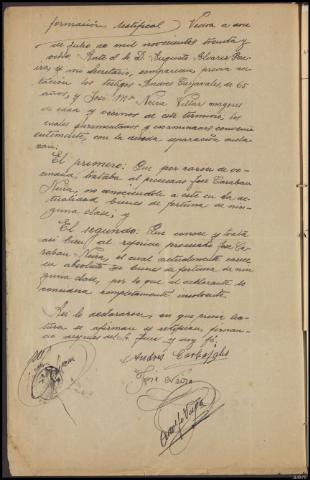 formación testifical Viana a once
de Julio de mil novecientos treinta y
ocho. Ante S. S. D. Augusto Alvarez
y mi Secretario, comparecen previa
citación los testigos Andres Carbajales, de 65
años, y José Mª Neira Villar mayores
de edad y vecinos de este termino, los
cuales juramentados y examinados convenien
temente, con la debida separación decla
ran:
El primero: Que por razon de ve
cindad, trataba al procesado José Caraban
Neira, no conociendole a este en la ac
tualidad bienes de fortuna de nin
guna clase; y
El segundo: Que conoce y trata
así bien al referido procesado José Ca
raban Neira, el cual actualmente carece
en absoluto de bienes de fortuna de nin
guna clase, por lo que el declarante lo
considera completamente insolvente.
Asi lo declararon, en que previa lec
tura se afirman y ratifican, firman
do despues del Sr Juez y doy fé.
Andrés Carbajales
José Neira